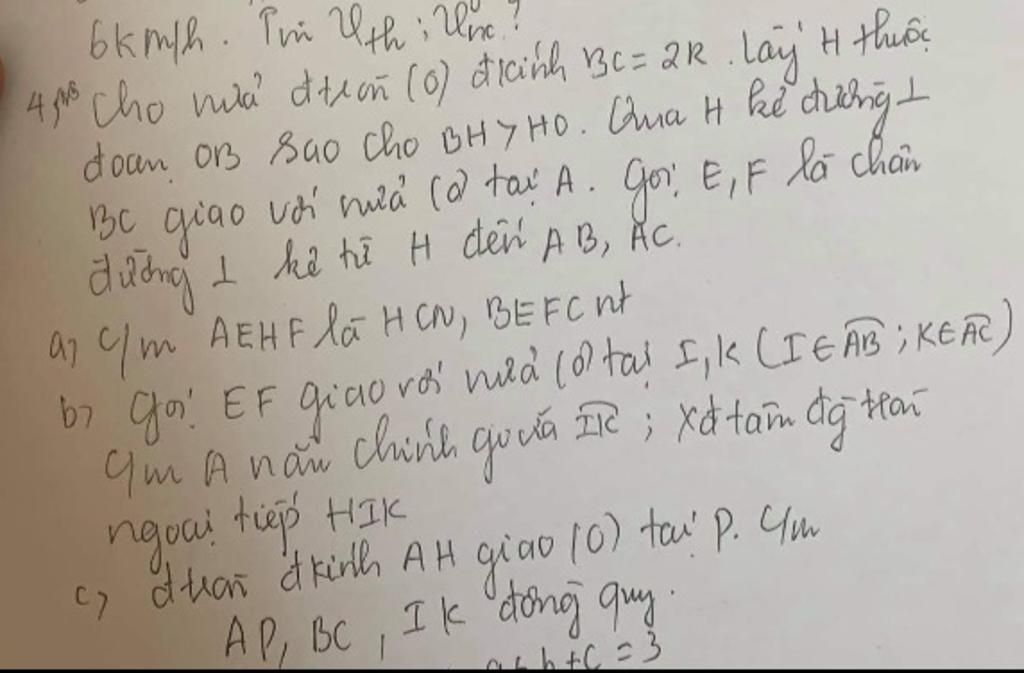 6km/h. Tìm Vth; Vnc?
4, Cho nửa đtròn (O) đkính BC = 2R. Lấy H thuộc
đoạn OB sao cho BH > HO. Qua H kẻ đường ⊥
BC giao với nửa (O) tại A. Gọi E, F là chân
đường ⊥ kẻ từ H đến AB, AC.
a, C/m AEHF là HCN, BEFC nt
b, Gọi EF giao với nửa (O) tại I, K (I ∈ AB; K ∈ AC)
C/m A nằm chính giữa IK; Xđ tâm đg tròn
ngoại tiếp HIK
c, đtròn đkính AH giao (O) tại P. C/m
AP, BC, IK đồng quy.
b+c = 3